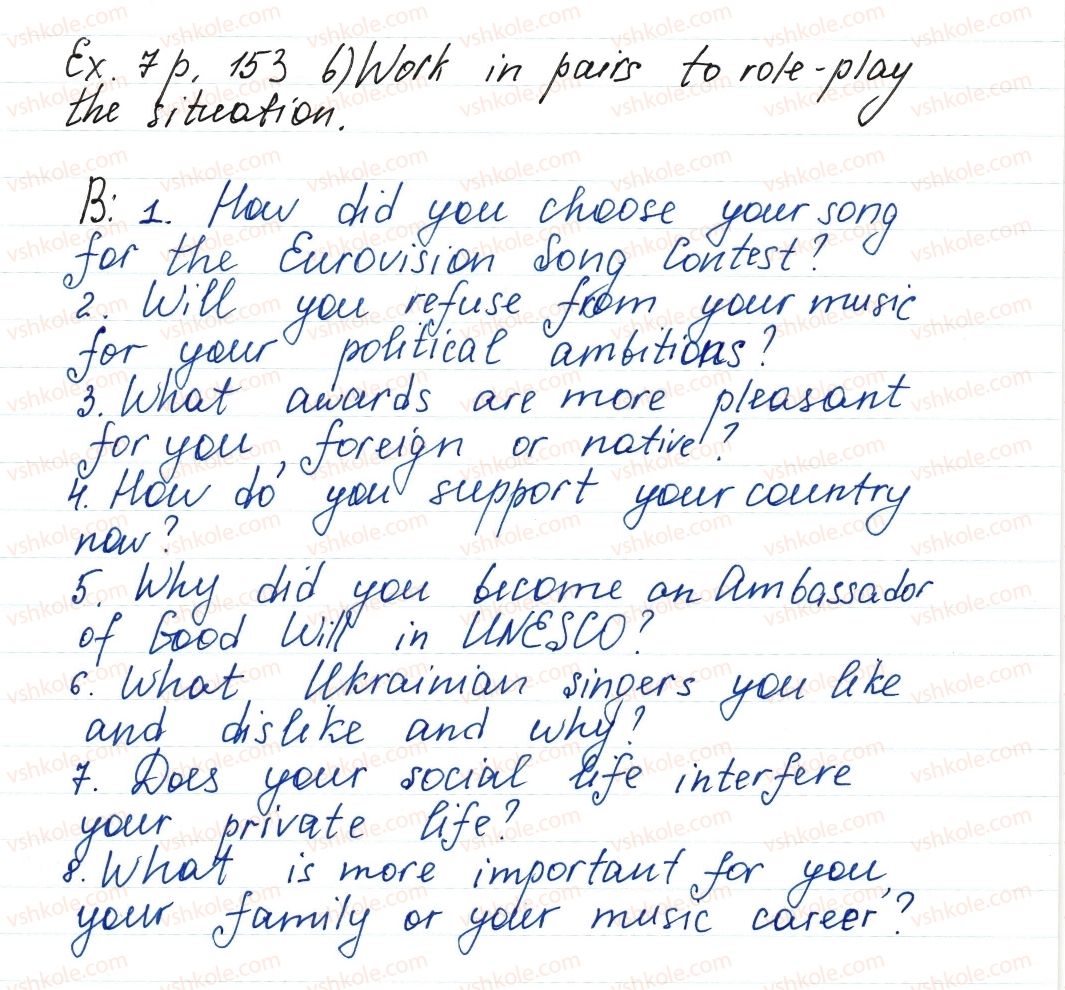 Ex. 7 p. 153 b) Work in pairs to role-play
the situation.
B: 1. How did you choose your song
for the Eurovision Song Contest?
2. Will you refuse from your music
for your political ambitions?
3. What awards are more pleasant
for you, foreign or native?
4. How do you support your country
now?
5. Why did you become an Ambassador
of Good Will in UNESCO?
6. What Ukrainian singers you like
and dislike and why?
7. Does your social life interfere
your private life?
8. What is more important for you,
your family or your music career?
vshkole.com